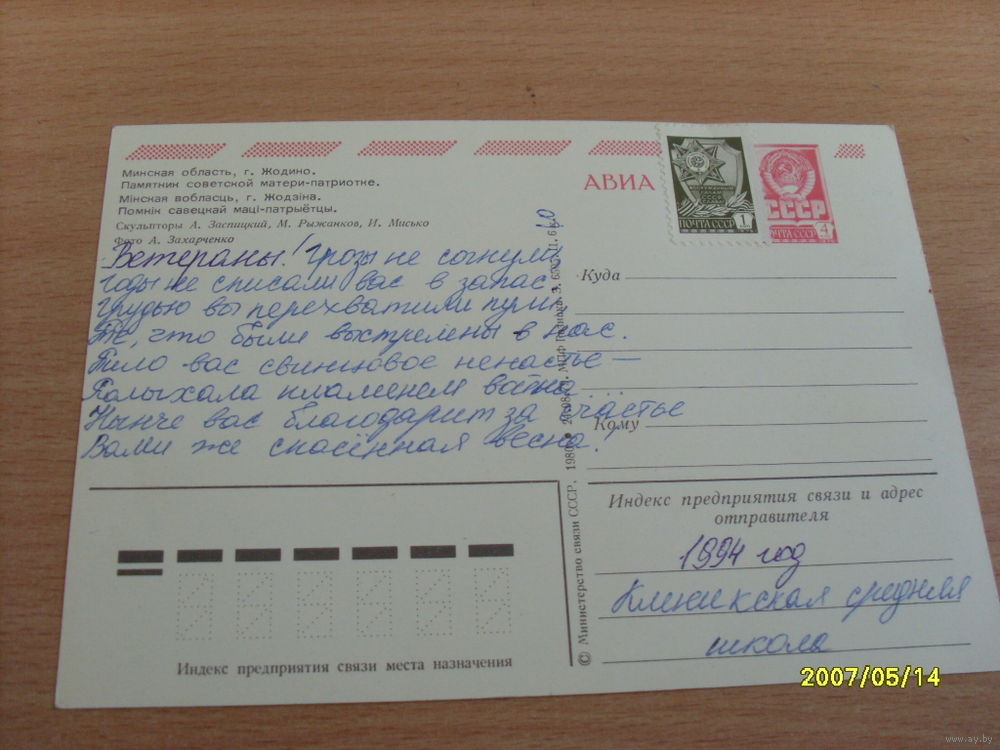 Минская область, г. Жодино.
Памятник советской матери-патриотке.
Мінская вобласць, г. Жодзіна.
Помнік савецкай маці-патрыётцы.
Скульпторы А. Заспицкий, М. Рыжанков, И. Мисько
Фото А. Захарченко
АВИА
ПОЧТА СССР
1
СССР
ПОЧТА СССР
4
Ветераны! Грозы не согнули,
годы не списали вас в запас.
грудью вы перехватили пули,
Те, что были выстрелены в нас.
Било вас свинцовое ненастье —
Полыхала пламенем война...
Нынче вас благодарит за счастье
Вами же спасённая весна.
Куда
Кому
© Министерство связи СССР. 1980.
Индекс предприятия связи и адрес
отправителя
1994 год
средняя
школа
Индекс предприятия связи места назначения
2007/05/14
www.ay.by